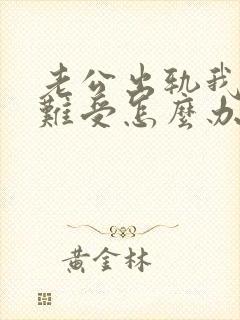 老公出轨我
難受怎麼办
黄金林